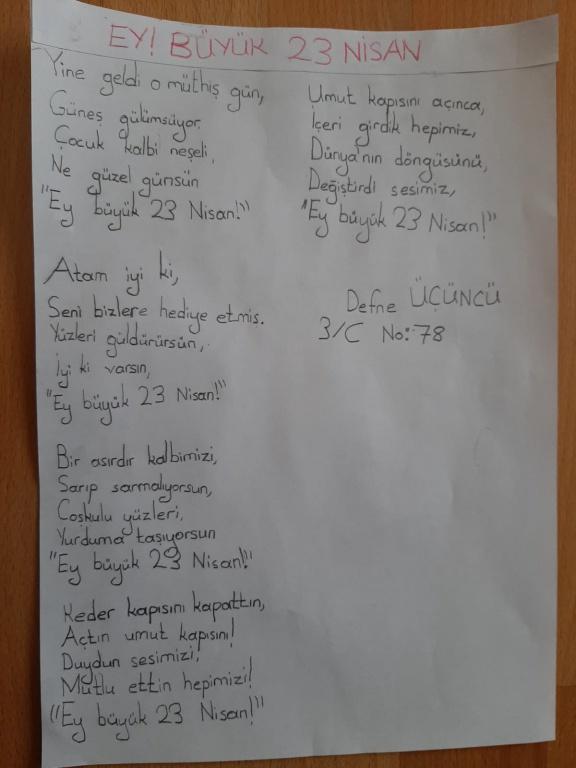 EY! BÜYÜK 23 NİSAN
Yine geldi o müthiş gün,
Güneş gülümsüyor.
Çocuk kalbi neşeli,
Ne güzel günsün
"Ey büyük 23 Nisan!"
Atam iyi ki,
Seni bizlere hediye etmiş.
Yüzleri güldürürsün,
İyi ki varsın,
"Ey büyük 23 Nisan!"
Bir asırdır kalbimizi,
Sarıp sarmalıyorsun,
Coşkulu yüzleri,
Yurduma taşıyorsun
"Ey büyük 23 Nisan!"
Keder kapısını kapattın,
Açtın umut kapısını!
Duydun sesimizi,
Mutlu ettin hepimizi!
"Ey büyük 23 Nisan!"
Umut kapısını açınca,
İçeri girdik hepimiz,
Dünya'nın döngüsünü,
Değiştirdi sesimiz,
"Ey büyük 23 Nisan!"
Defne ÜÇÜNCÜ
3/C No: 78